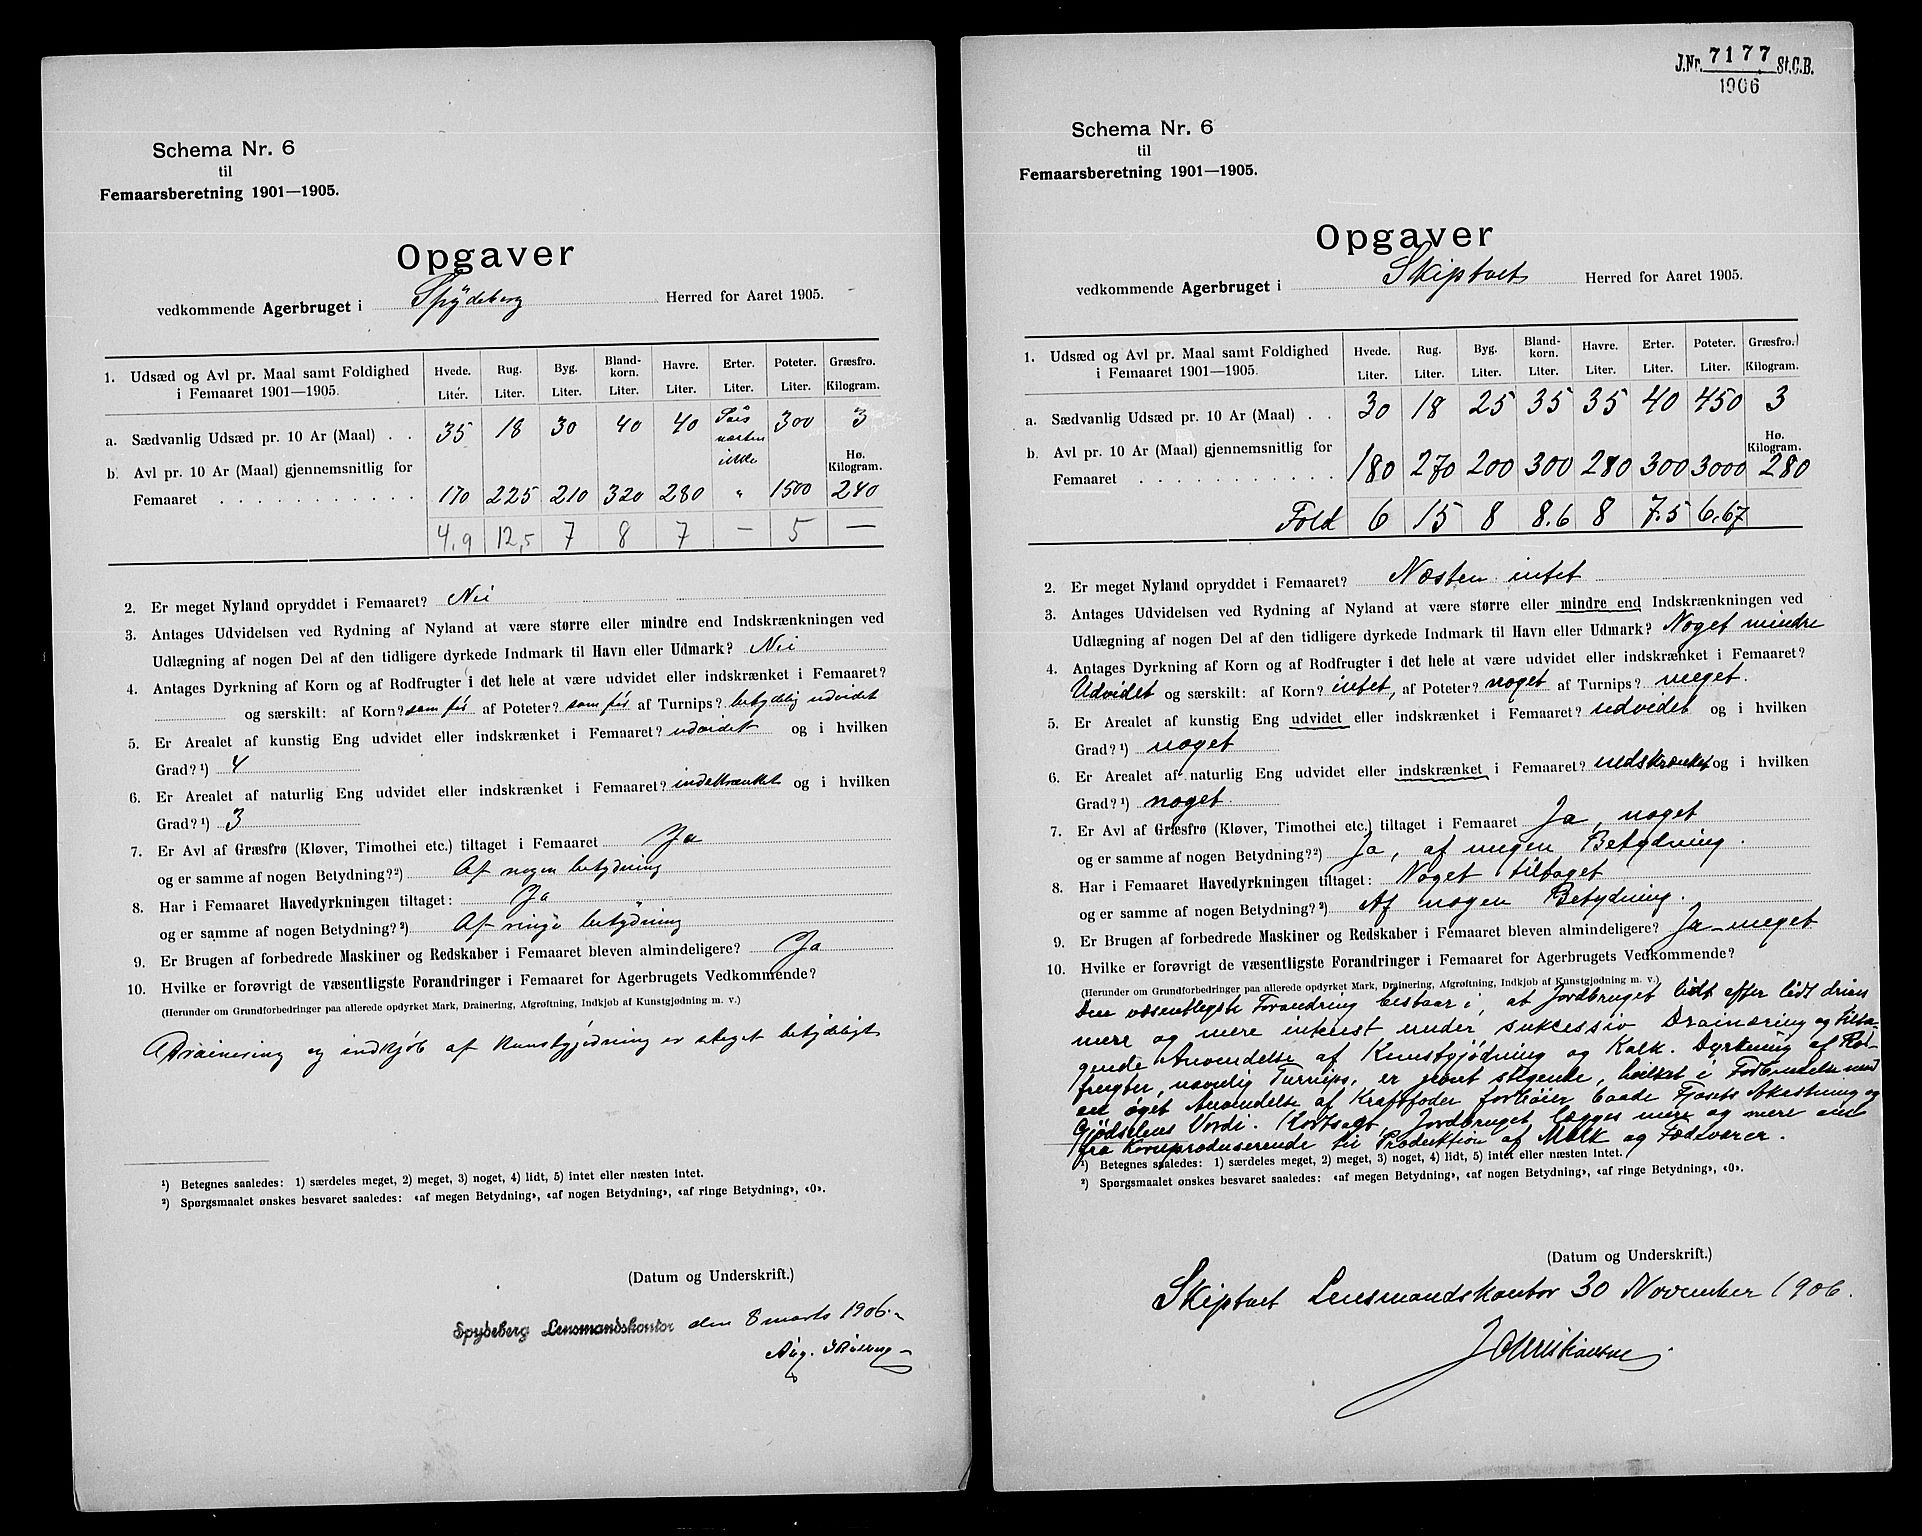 Schema Nr. 6
til
Femaarsberetning 1901—1905.
Opgaver
vedkommende Agerbruget i Spydeberg Herred for Aaret 1905.
1. Udsæd og Avl pr. Maal samt Foldighed i Femaaret 1901—1905.
Hvede. Rug. Byg. Bland-korn. Havre. Erter. Poteter. Græsfrø.
Liter. Liter. Liter. Liter. Liter. Liter. Liter. Kilogram.
a. Sædvanlig Udsæd pr. 10 Ar (Maal) . . 35 18 30 40 40 Saas næsten ikke 300 3
Hø. Kilogram.
b. Avl pr. 10 Ar (Maal) gjennemsnitlig for
Femaaret . . . . . . . . . . . . 170 225 210 320 280 " 1500 240
4.9 12,5 7 8 7 — 5 —
2. Er meget Nyland opryddet i Femaaret? Nei
3. Antages Udvidelsen ved Rydning af Nyland at være større eller mindre end Indskrænkningen ved
Udlægning af nogen Del af den tidligere dyrkede Indmark til Havn eller Udmark? Nei
4. Antages Dyrkning af Korn og af Rodfrugter i det hele at være udvidet eller indskrænket i Femaaret?
og særskilt: af Korn? som før af Poteter? som før af Turnips? betydelig udvidet
5. Er Arealet af kunstig Eng udvidet eller indskrænket i Femaaret? udvidet og i hvilken
Grad?¹) 4
6. Er Arealet af naturlig Eng udvidet eller indskrænket i Femaaret? indskrænket og i hvilken
Grad?¹) 3
7. Er Avl af Græsfrø (Kløver, Timothei etc.) tiltaget i Femaaret Ja
og er samme af nogen Betydning?²) Af nogen betydning
8. Har i Femaaret Havedyrkningen tiltaget: Ja
og er samme af nogen Betydning?²) Af ringe betydning
9. Er Brugen af forbedrede Maskiner og Redskaber i Femaaret bleven almindeligere? Ja
10. Hvilke er forøvrigt de væsentligste Forandringer i Femaaret for Agerbrugets Vedkommende?
(Herunder om Grundforbedringer paa allerede opdyrket Mark, Drainering, Afgrøftning, Indkjøb af Kunstgjødning m. v.)
Drainering og indkjøb af Kunstgjødning er steget betydeligt
¹) Betegnes saaledes: 1) særdeles meget, 2) meget, 3) noget, 4) lidt, 5) intet eller næsten intet.
²) Spørgsmaalet ønskes besvaret saaledes: «af megen Betydning», «af nogen Betydning», «af ringe Betydning», «0».
(Datum og Underskrift.)
Spydeberg Lensmandskontor den 8 marts 1906.
Aug.
J.Nr. 7177 St.C.B.
1906
Schema Nr. 6
til
Femaarsberetning 1901—1905.
Opgaver
vedkommende Agerbruget i Skiptvet Herred for Aaret 1905.
1. Udsæd og Avl pr. Maal samt Foldighed i Femaaret 1901—1905.
Hvede. Rug. Byg. Bland-korn. Havre. Erter. Poteter. Græsfrø.
Liter. Liter. Liter. Liter. Liter. Liter. Liter. Kilogram.
a. Sædvanlig Udsæd pr. 10 Ar (Maal) . . 30 18 25 35 35 40 450 3
Hø. Kilogram.
b. Avl pr. 10 Ar (Maal) gjennemsnitlig for
Femaaret . . . . . . . . . . . 180 270 200 300 280 300 3000 280
Fold 6 15 8 8.6 8 7.5 6.67
2. Er meget Nyland opryddet i Femaaret? Næsten intet
3. Antages Udvidelsen ved Rydning af Nyland at være større eller mindre end Indskrænkningen ved
Udlægning af nogen Del af den tidligere dyrkede Indmark til Havn eller Udmark? Noget mindre
4. Antages Dyrkning af Korn og af Rodfrugter i det hele at være udvidet eller indskrænket i Femaaret?
Udvidet og særskilt: af Korn? intet, af Poteter? noget af Turnips? meget.
5. Er Arealet af kunstig Eng udvidet eller indskrænket i Femaaret? udvidet og i hvilken
Grad?¹) noget
6. Er Arealet af naturlig Eng udvidet eller indskrænket i Femaaret? indskrænket og i hvilken
Grad?¹) noget.
7. Er Avl af Græsfrø (Kløver, Timothei etc.) tiltaget i Femaaret Ja, noget
og er samme af nogen Betydning?²) Ja, af megen Betydning.
8. Har i Femaaret Havedyrkningen tiltaget: Noget tiltaget
og er samme af nogen Betydning?²) Af nogen Betydning.
9. Er Brugen af forbedrede Maskiner og Redskaber i Femaaret bleven almindeligere? Ja meget
10. Hvilke er forøvrigt de væsentligste Forandringer i Femaaret for Agerbrugets Vedkommende?
(Herunder om Grundforbedringer paa allerede opdyrket Mark, Drainering, Afgrøftning, Indkjøb af Kunstgjødning m. v.)
Den væsentligste Forandring bestaar i, at Jordbruget lidt efter lidt drives
mere og mere intenst under suksessiv Drainæring og tilta-
gende Anvendelse af Kunstgjødning og Kalk. Dyrkning af Rod-
frugter, navnlig Turnips, er jevnt stigende, hvilket i Forbindelse med
en øget Anvendelse af Kraftfoder forhøier baade Fjøsets Avkastning og
Gjødselens Værdi. Kortsagt, Jordbruget lægges mere og mere om
fra Kornproduserende til Produktion af Melk og Fødevarer.
¹) Betegnes saaledes: 1) særdeles meget, 2) meget, 3) noget, 4) lidt, 5) intet eller næsten intet.
²) Spørgsmaalet ønskes besvaret saaledes: «af megen Betydning», «af nogen Betydning», «af ringe Betydning», «0».
(Datum og Underskrift.)
Skiptvet Lensmandskontor 30 November 1906.
J Christiansen